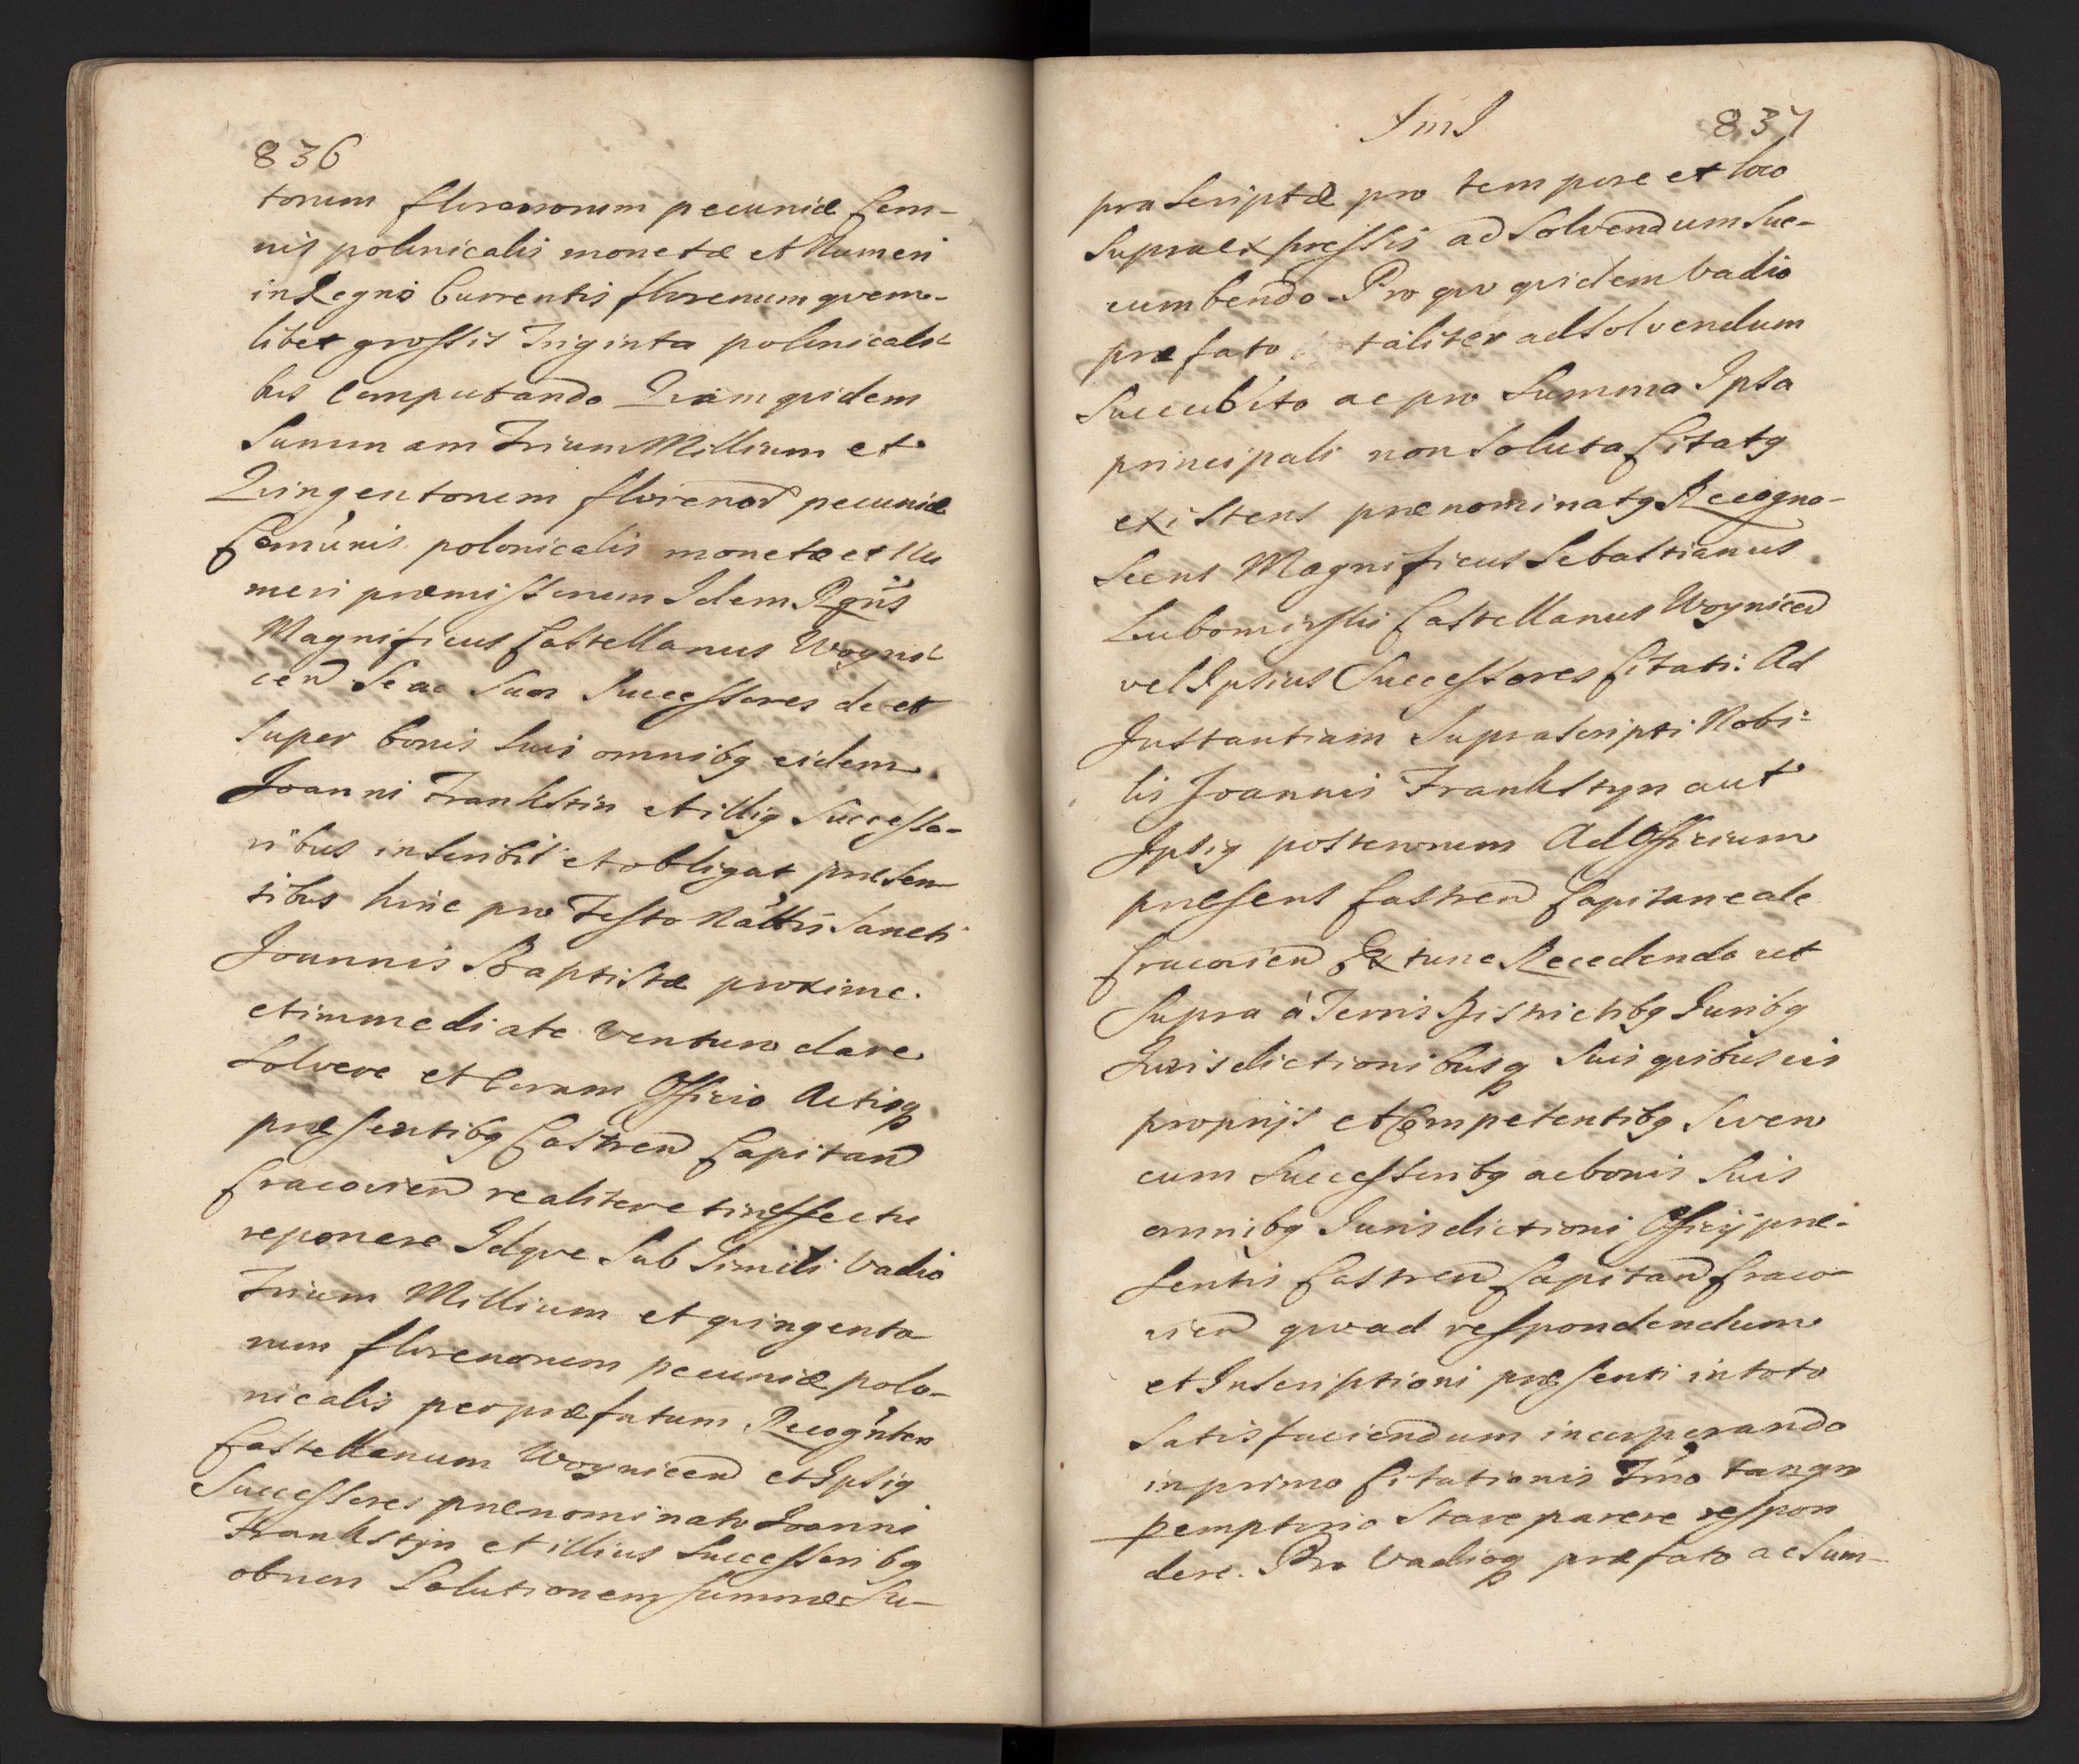 836
torum florenorum pecuniæ Com-
nis polonicalis monetæ et Numeri
in Regno Currentis florenum qvem-
libet grossis Triginta polonicali-
bus Computando Qvam qvidem
Summam Trium Millium et
Qvingentorum floreno℞ pecuniæ
Comunis polonicalis monetæ et Nu
meri præmissorum Idem Rgns
Magnificus Castellanus Woyni-
cen̄ Se ac Suos Successores de et
Super bonis Suis omnibq eidem
Joanni Frankstin et illiq Successo-
ribus inscribit et obligat præsen
tibus hinc pro Festo Nāttis Sancti
Joannis Baptistæ proxime
et immediate venturo dare
Solvere et Coram Officio Actisq
præsentibq Castren̄ Capitan̄
Cracovien̄ realiter et in effectu
reponere Idqve Sub Simili Vadio
Trium Millium et qvingento
rum florenorum pecuniæ polo-
nicalis per præfatum Recogn̄ten
Castellanum Woynicen̄ et Ipsiq
Successores prænominato Joanni
Frankstyn et illius Successoribq
ob non Solutionem Summæ Su-
JmJ
837
præscriptæ pro tempore et loco
Supraexpressis ad Solvendum Suc-
cumbendo. Pro qvo qvidem Vadio
præfato taliter ad Solvendum
Succubito ac pro Summa Ipsa
principali non Soluta Citatq
existens prænominatq Recogno-
scens Magnificus Sebastianus
Lubomirski Castellanus Woynicen̄
vel Ipsius Successores Citati: Ad
Instantiam Suprascripti Nobi-
lis Joannis Frankstyn aut
Ipsiq posterorum Ad Officium
præsens Castren̄ Capitaneale
Cracovien̄ Ex tunc Recedendo ut
Supra à Terris Districtibq Juribq
Jurisdictionibusq Suis qvibusvis
proprijs et Competentibq Seven
cum Successoribq ac bonis Suis
omnibq Jurisdictioni Officij præ-
sentis Castren̄ Capitan̄ Craco-
vien̄ qvoad respondendum
et Inscriptioni præsenti in toto
Satisfaciendum incorporando
in primo Citationis Trno tanqm
pemptorio Stare parere respon
dere. Pro Vadioq præfato ac Sum-